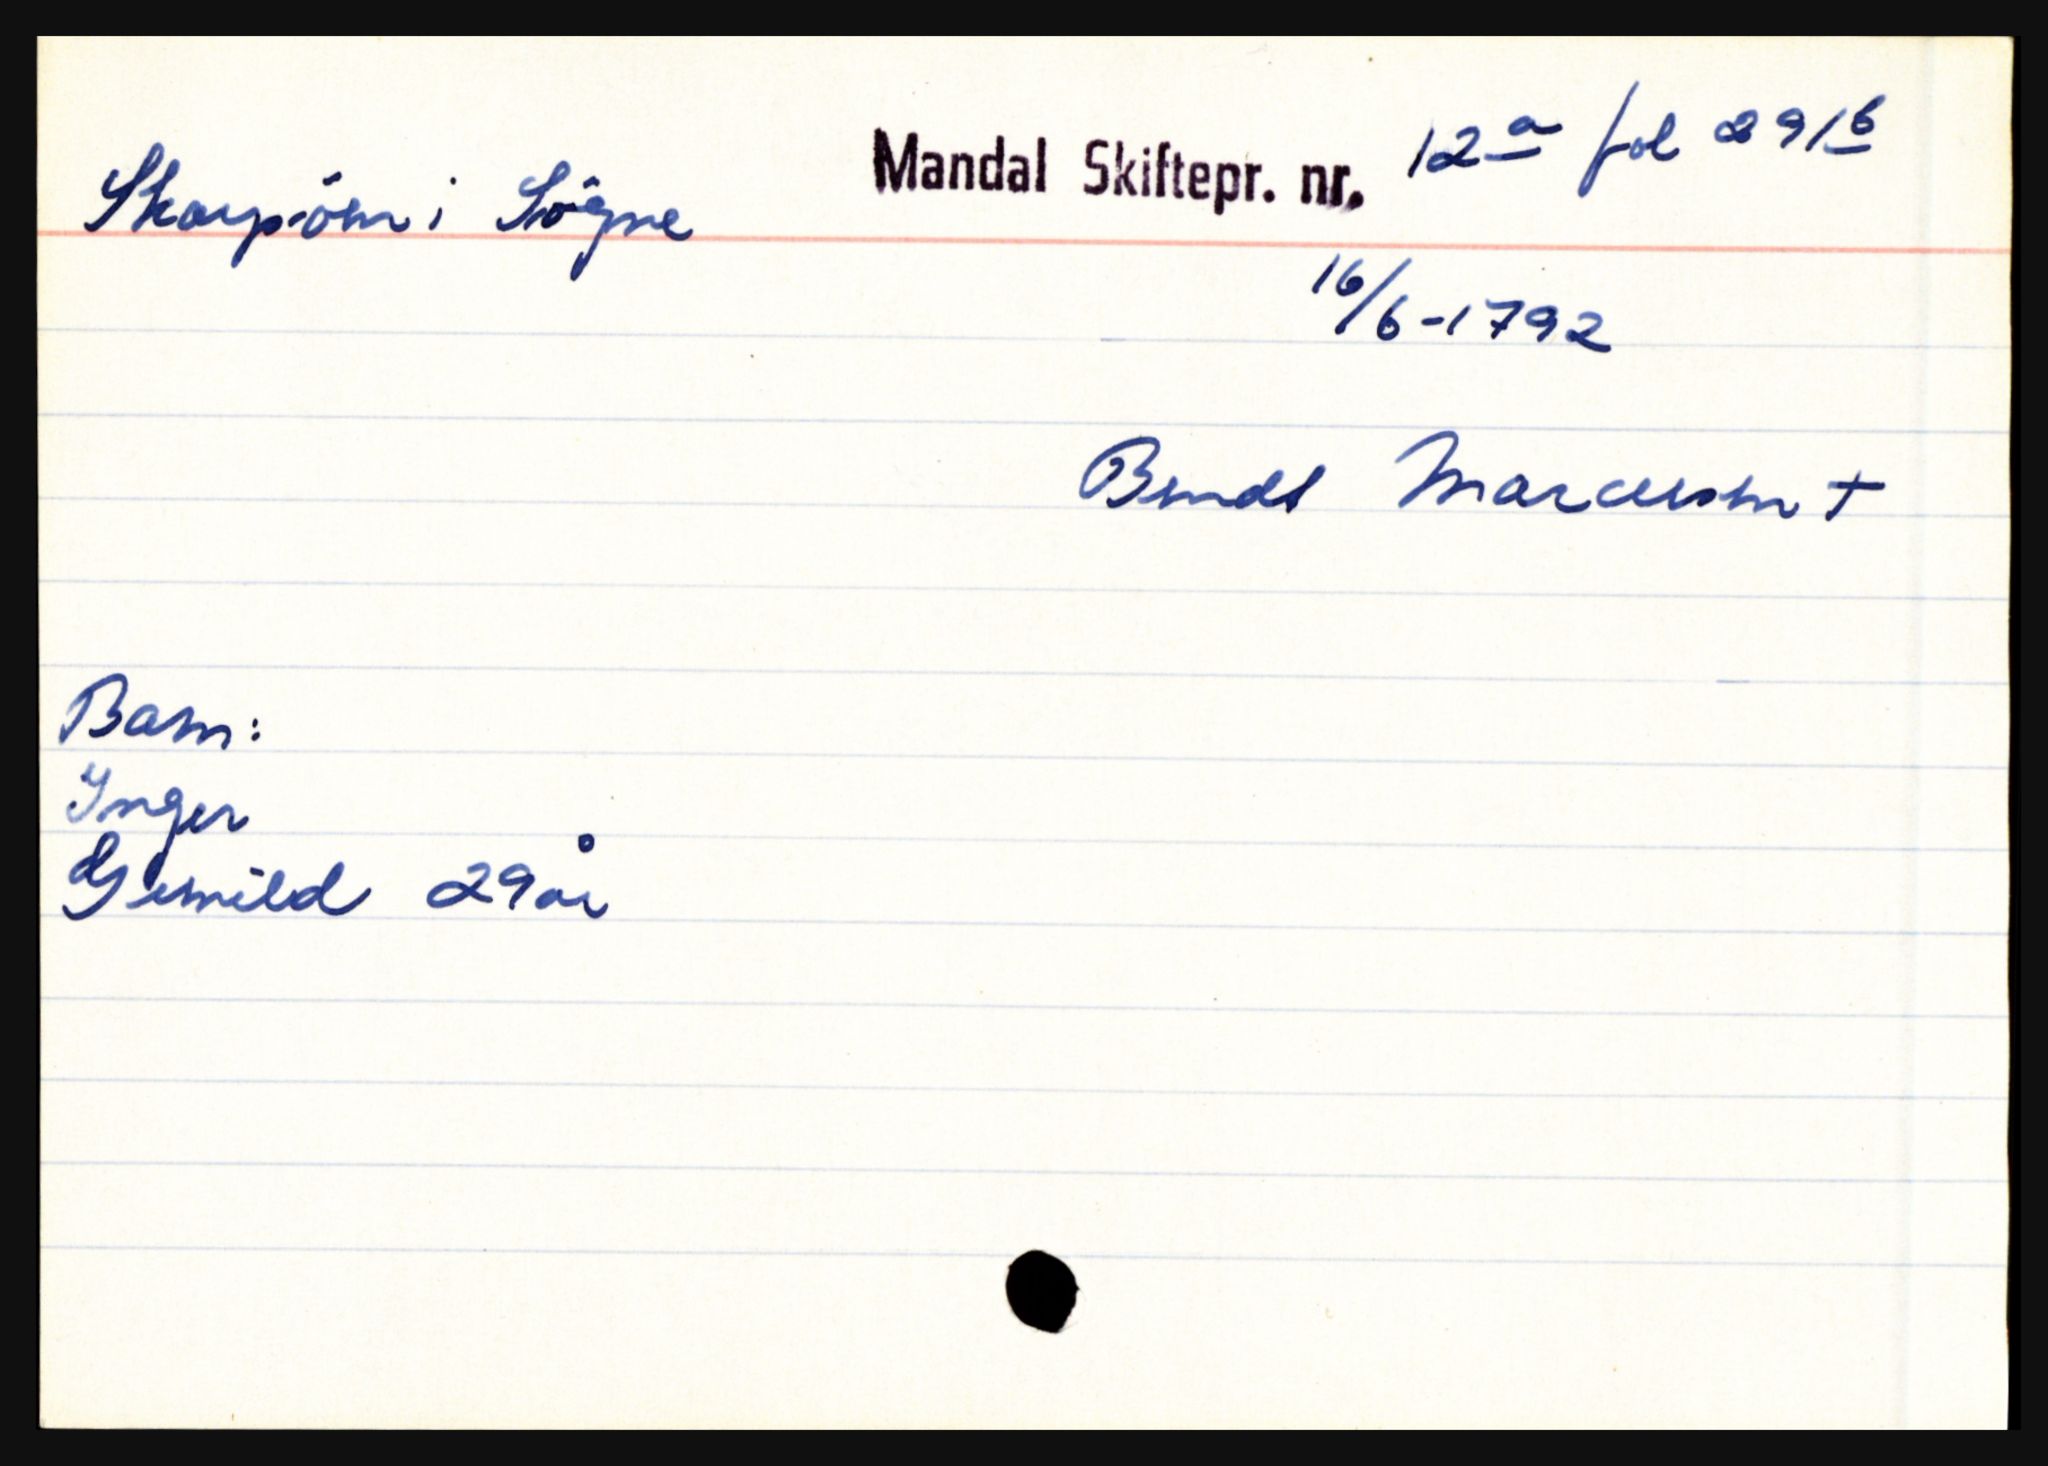 Skarpöen i Sögne Mandal Skiftepr. nr. 12a fol 291b
16/6-1792
Berndt Marcussen +
Barn:
Inger
Gunild 29 år